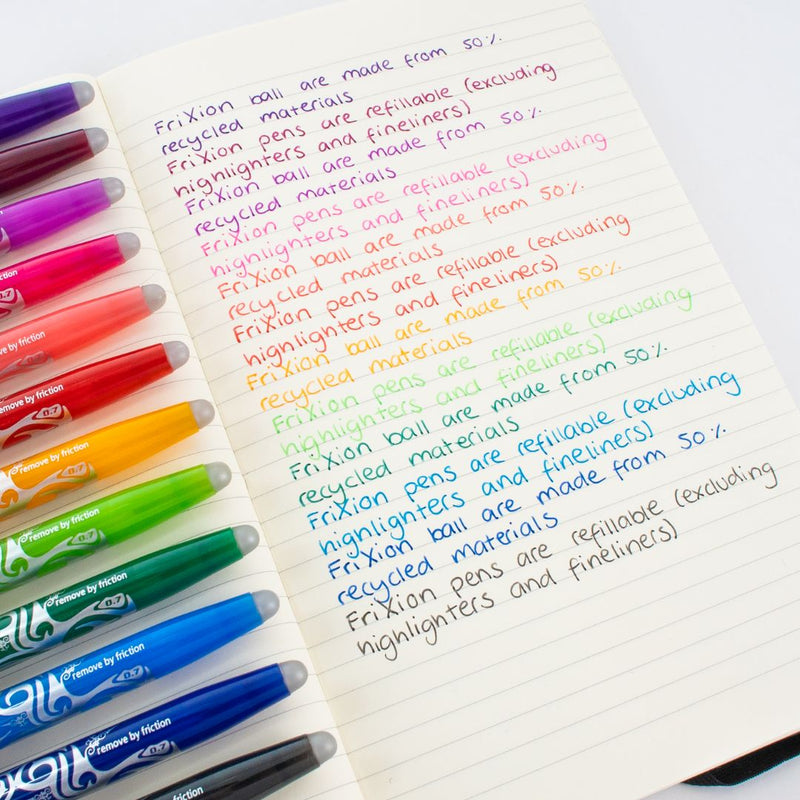 FriXion ball are made from 50%.
recycled materials
FriXion pens are refillable (excluding
highlighters and fineliners)
FriXion ball are made from 50%.
recycled materials
FriXion pens are refillable (excluding
highlighters and fineliners)
FriXion ball are made from 50%.
recycled materials
FriXion pens are refillable (excluding
highlighters and fineliners)
FriXion ball are made from 50%.
recycled materials
FriXion pens are refillable (excluding
highlighters and fineliners)
FriXion ball are made from 50%.
recycled materials
FriXion pens are refillable (excluding
highlighters and fineliners)
FriXion ball are made from 50%.
recycled materials
FriXion pens are refillable (excluding
highlighters and fineliners)
friction
0.7
by friction
remove by friction
0.7
remove by friction
0.7
remove by friction
0.7
remove by friction
0.7
remove by friction
0.7
remove by friction
0.7
friction